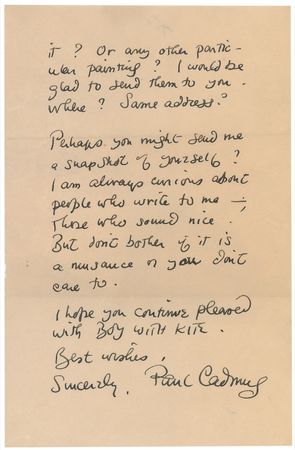 it? Or any other partic-
ular painting? I would be
glad to send them to you.
Where? Same address?
Perhaps you might send me
a snapshot of yourself?
I am always curious about
people who write to me —,
those who sound nice.
But don't bother if it is
a nuisance or you don't
care to.
I hope you continue pleased
with Boy with Kite.
Best wishes,
Sincerely, Paul Cadmus